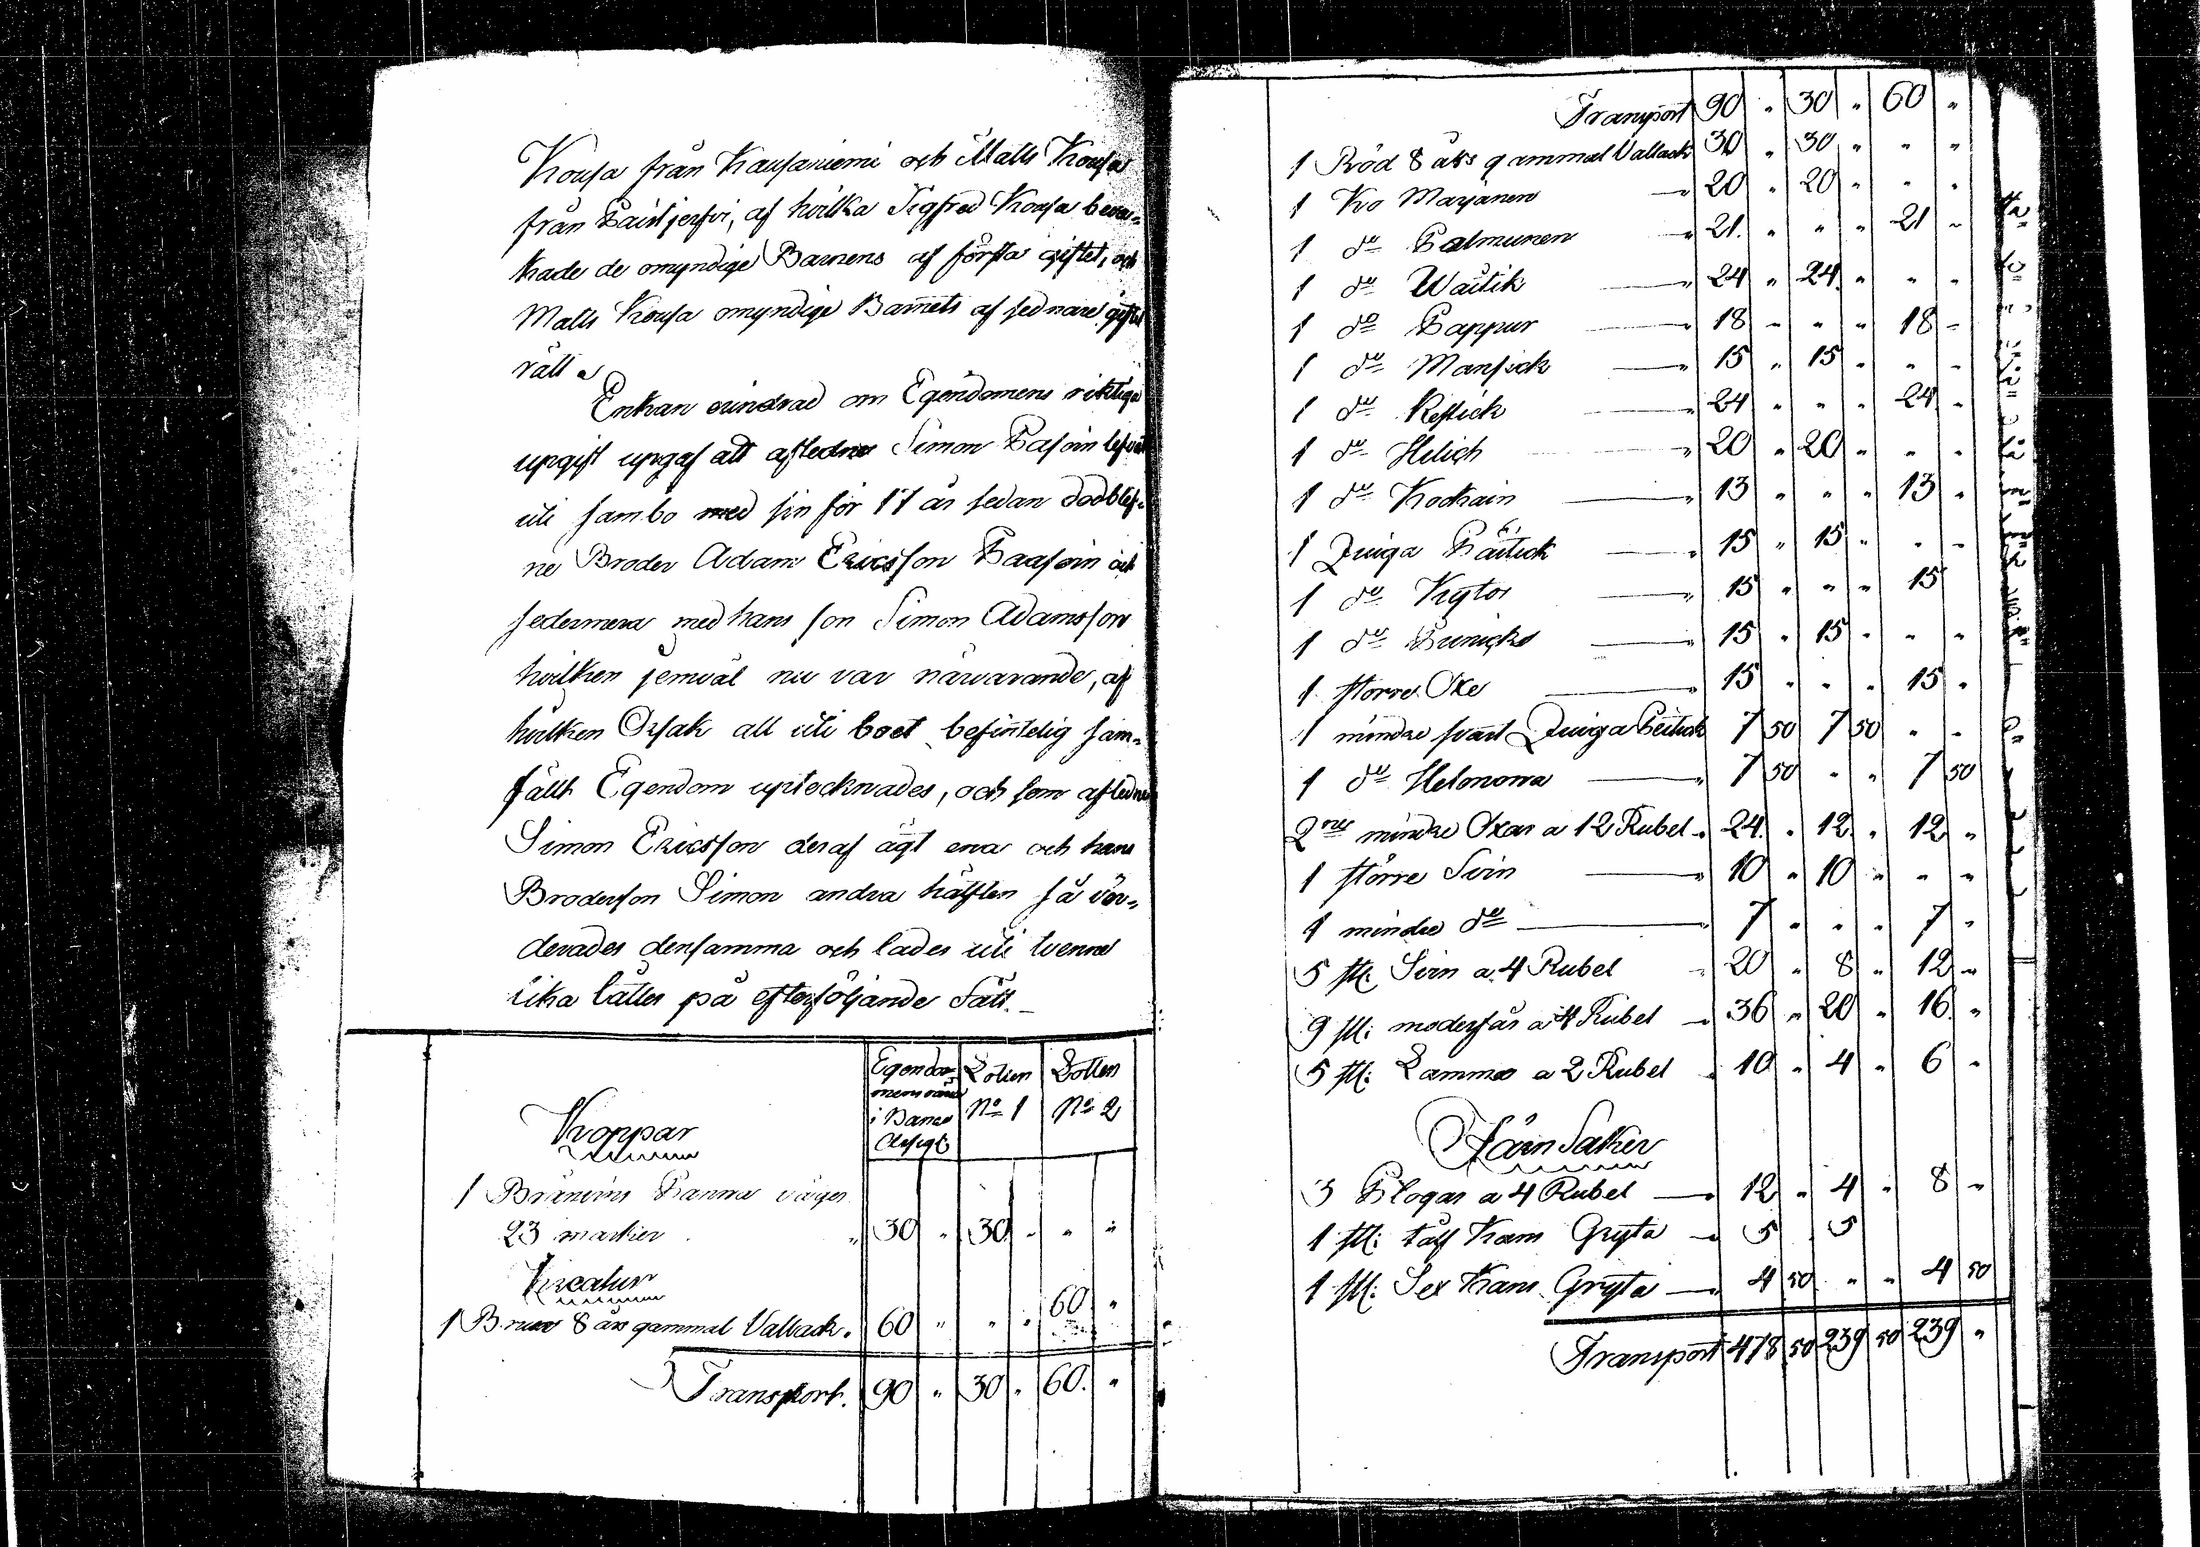 Kousa från Kausaniemi och Matts Kousa
från Päiäsjerfvi, af hvilka Sigfred Kousa beva-
kade de omyndige Barnens af första giftet, och
Matts Kousa omyndige Barnets af sednare giftet
rätt.
Enkan erindrad om Egendomens riktiga
upgift upgaf att afledne Simon Pasoin lefvat
uti sambo med sin för 17 år sedan dödblef-
ne Broder Adam Ericsson Paasoin och
sedermera med hans son Simon Adamsson
hvilken jemväl nu var närvarande, af
hvilken Orsak all uti boet befintelig sam-
fällt Egendom uptecknades, och som aflednes
Simon Ericsson deraf ägt ena och hans
Broderson Simon andra hälften så vär-
derades densamma och lades uti tvenne
lika låtter på efterföljande Sätt.
Egendo- Lotten Lotten
mens värde No 1 No 2
i Banco
Assigt
Koppar
1 Bränvins Panna väger
23 marker " 30 " 30 " " "
Kreatur
1 Brun 8 års gammal Vallack. 60 " " " 60 "
Transport. 90 " 30 " 60 "
Transport 90 " 30 " 60 "
1 Röd 8 års gammal Vallack 30 " 30 " " "
1 Ko Marjanen 20 " 20 " " "
1 do Palmunen 21 " " " 21 "
1 do Waitik 24 " 24 " " "
1 do Pappur 18 " " " 18 "
1 do Mansick 15 " 15 " " "
1 do Restick 24 " " " 24 "
1 do Helich 20 " 20 " " "
1 do Kockain 13 " " " 13 "
1 Quiga Päitick 15 " 15 " " "
1 do Kytor 15 " " " 15
1 do Punicks 15 " 15 " " "
1 större Oxe 15 " " " 15 "
1 mindre svart Quiga Peitick 7 50 7 50 " "
1 do Helonona 7 50 " " 7 50
2ne mindre Oxar a 12 Rubel 24 " 12 " 12 "
1 större Svin 10 " 10 " " "
1 mindre do 7 " " " 7 "
5 st: Svin a 4 Rubel 20 " 8 " 12 "
9 st: moderfår a 4 Rubel 36 " 20 " 16 "
5 st: Lamm a 2 Rubel 10 " 4 " 6 "
Järn Saker
3 Plogar a 4 Rubel 12 " 4 " 8 "
1 st: tålf Kann Gryta 5 5
1 st: Sex Kann Gryta 4 50 " " 4 50
Transport 478 50 239 50 239 "